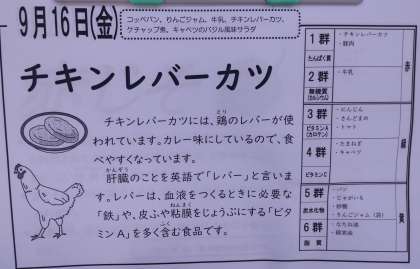 9月16日(金)
コッペパン、りんごジャム、牛乳、チキンレバーカツ、
ケチャップ煮、キャベツのバジル風味サラダ
チキンレバーカツ
チキンレバーカツには、鶏のレバーが使
とり
われています。カレー味にしているので、食
べやすくなっています。
かんぞう
肝臓のことを英語で「レバー」と言いま
す。レバーは、血液をつくるときに必要な
ねんまく
「鉄」や、皮ふや粘膜をじょうぶにする「ビタ
ミンA」を多く含む食品です。
ふく
1群
たんぱく質
・チキンレバーカツ
・豚肉
赤
2群
無機質
(カルシウム)
・牛乳
3群
ビタミンA
(カロテン)
・にんじん
・さんどまめ
・トマト
緑
4群
ビタミンC
・たまねぎ
・キャベツ
5群
炭水化物
・パン
・じゃがいも
・砂糖
・りんごジャム(袋)
黄
6群
脂質
・なたね油